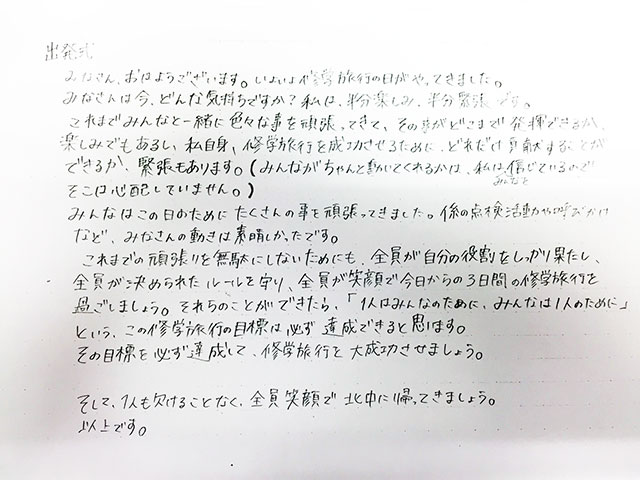 出発式
みなさん、おはようございます。いよいよ修学旅行の日がやってきました。
みなさんは今、どんな気持ちですか？私は、半分楽しみ、半分緊張です。
これまでみんなと一緒に色々な事を頑張ってきて、その事がどこまで発揮できるか、
楽しみでもあるし、私自身、修学旅行を成功させるために、どれだけ貢献することが
できるか、緊張もあります。（みんながちゃんと動いてくれるかは、私は信じているので
みんなを
そこは心配していません。）
みんなはこの日のためにたくさんの事を頑張ってきました。係の点検活動や呼びかけ
など、みなさんの動きは素晴しかったです。
これまでの頑張りを無駄にしないためにも、全員が自分の役割をしっかり果たし、
全員が決められたルールを守り、全員が笑顔で今日からの3日間の修学旅行を
過ごしましょう。それらのことができたら、「1人はみんなのために、みんなは1人のために」
という、この修学旅行の目標は必ず達成できると思います。
その目標を必ず達成して、修学旅行を大成功させましょう。
そして、1人も欠けることなく、全員笑顔で北中に帰ってきましょう。
以上です。